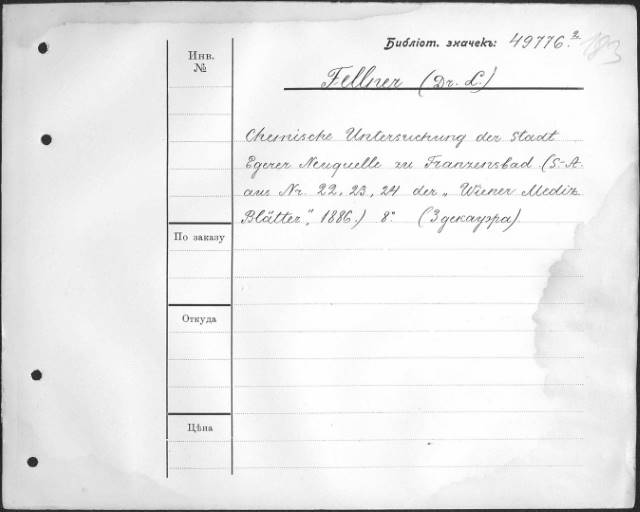 Библіот. значекъ: 49776.² 183
Инв.
№
Fellner (Dr. L.)
Chemische Untersuchung der Stadt
Egerer Neuquelle zu Franzensbad (S.-A.
aus Nr. 22, 23, 24 der „Wiener Mediz.
Blätter", 1886.) 8°
По заказу
Откуда
Цѣна